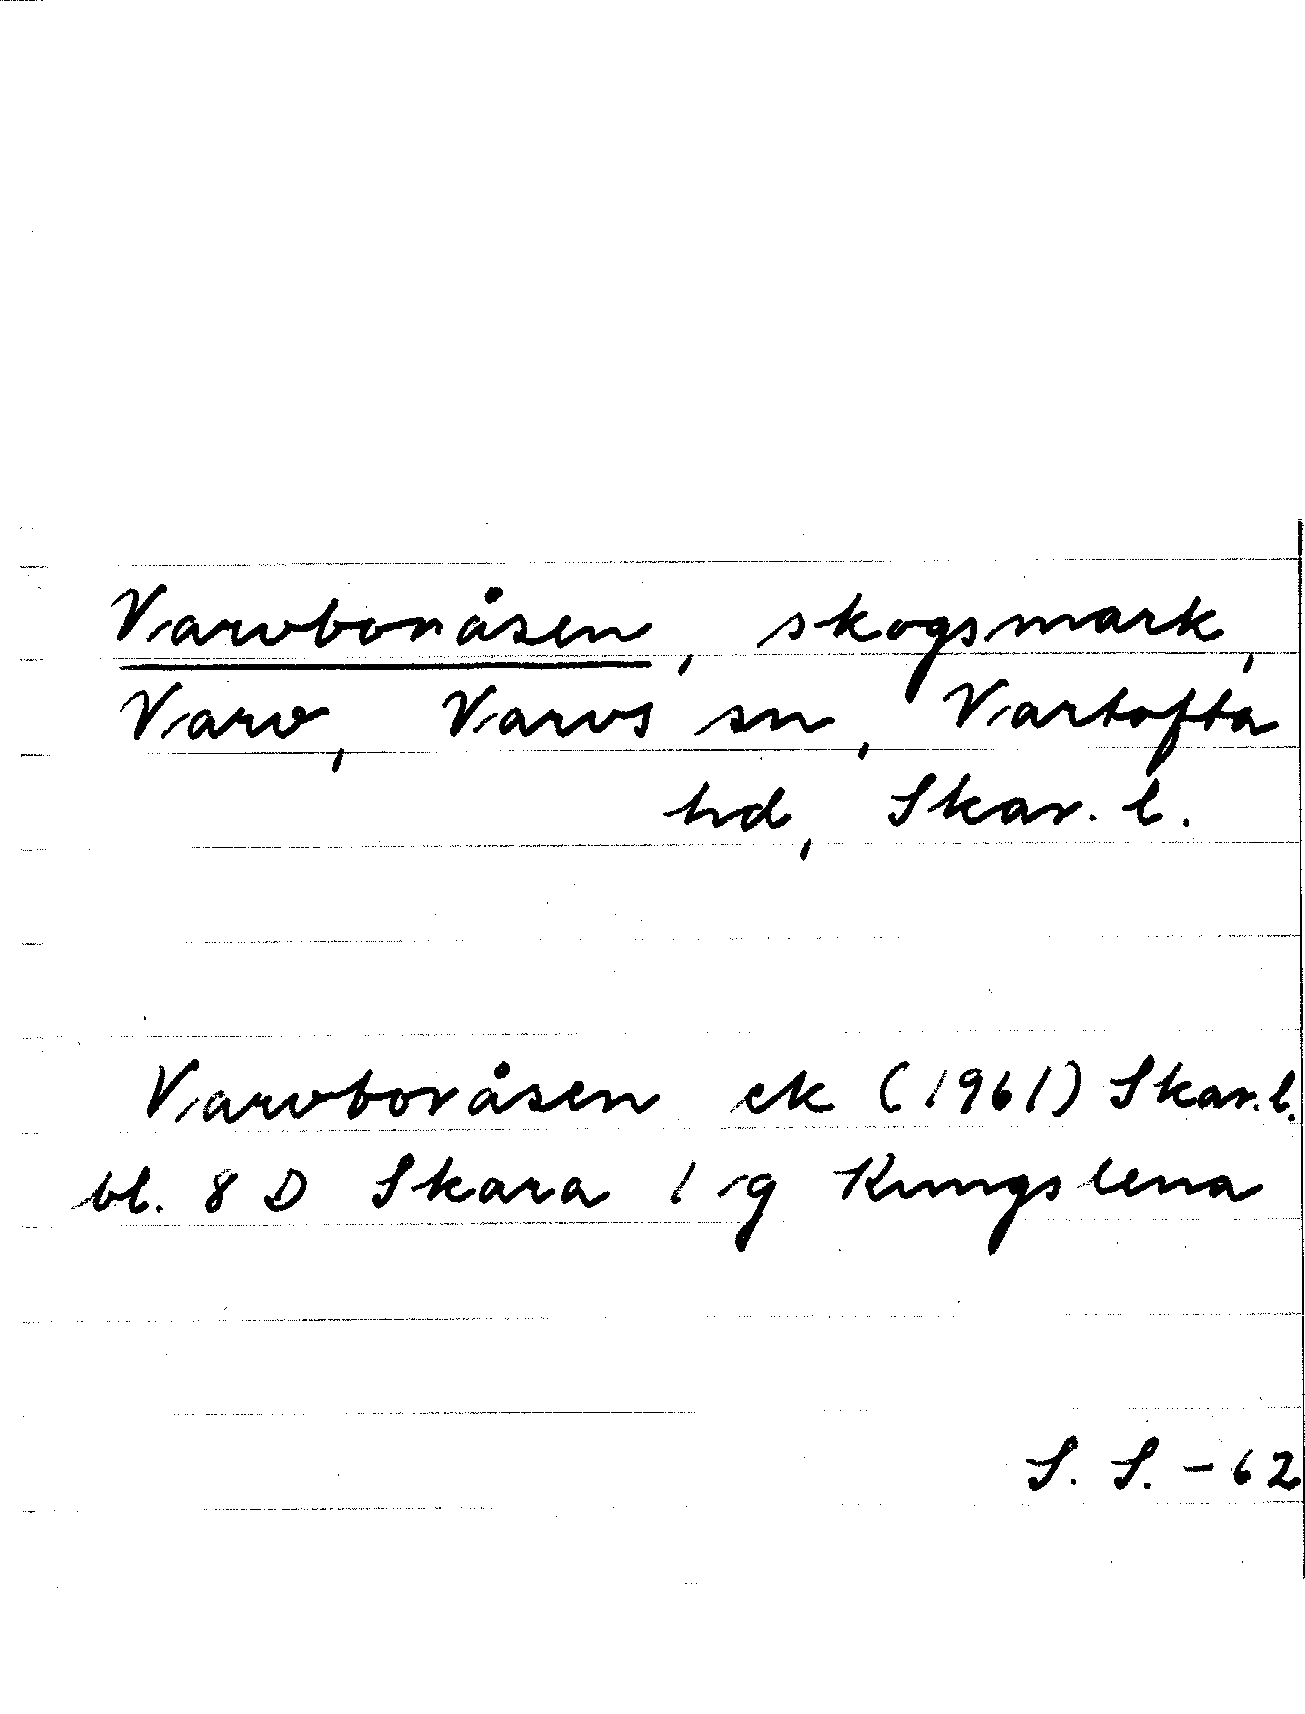 Varvboråsen, skogsmark,
Varv, Varvs sn, Vartofta
hd, Skar. l.
Varvboråsen ek (1961) Skar. l.
bl. 8 D Skara 1 g Kungslena
S. S. - 62